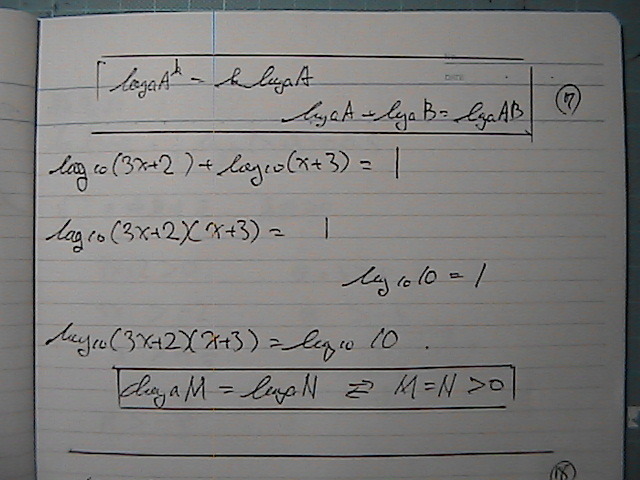 logₐAᵏ = k logₐA
logₐA + logₐB = logₐAB
⑦
log₁₀(3x+2) + log₁₀(x+3) = 1
log₁₀(3x+2)(x+3) = 1
log₁₀10 = 1
log₁₀(3x+2)(x+3) = log₁₀ 10 .
logₐM = logₐN ⇄ M = N > 0